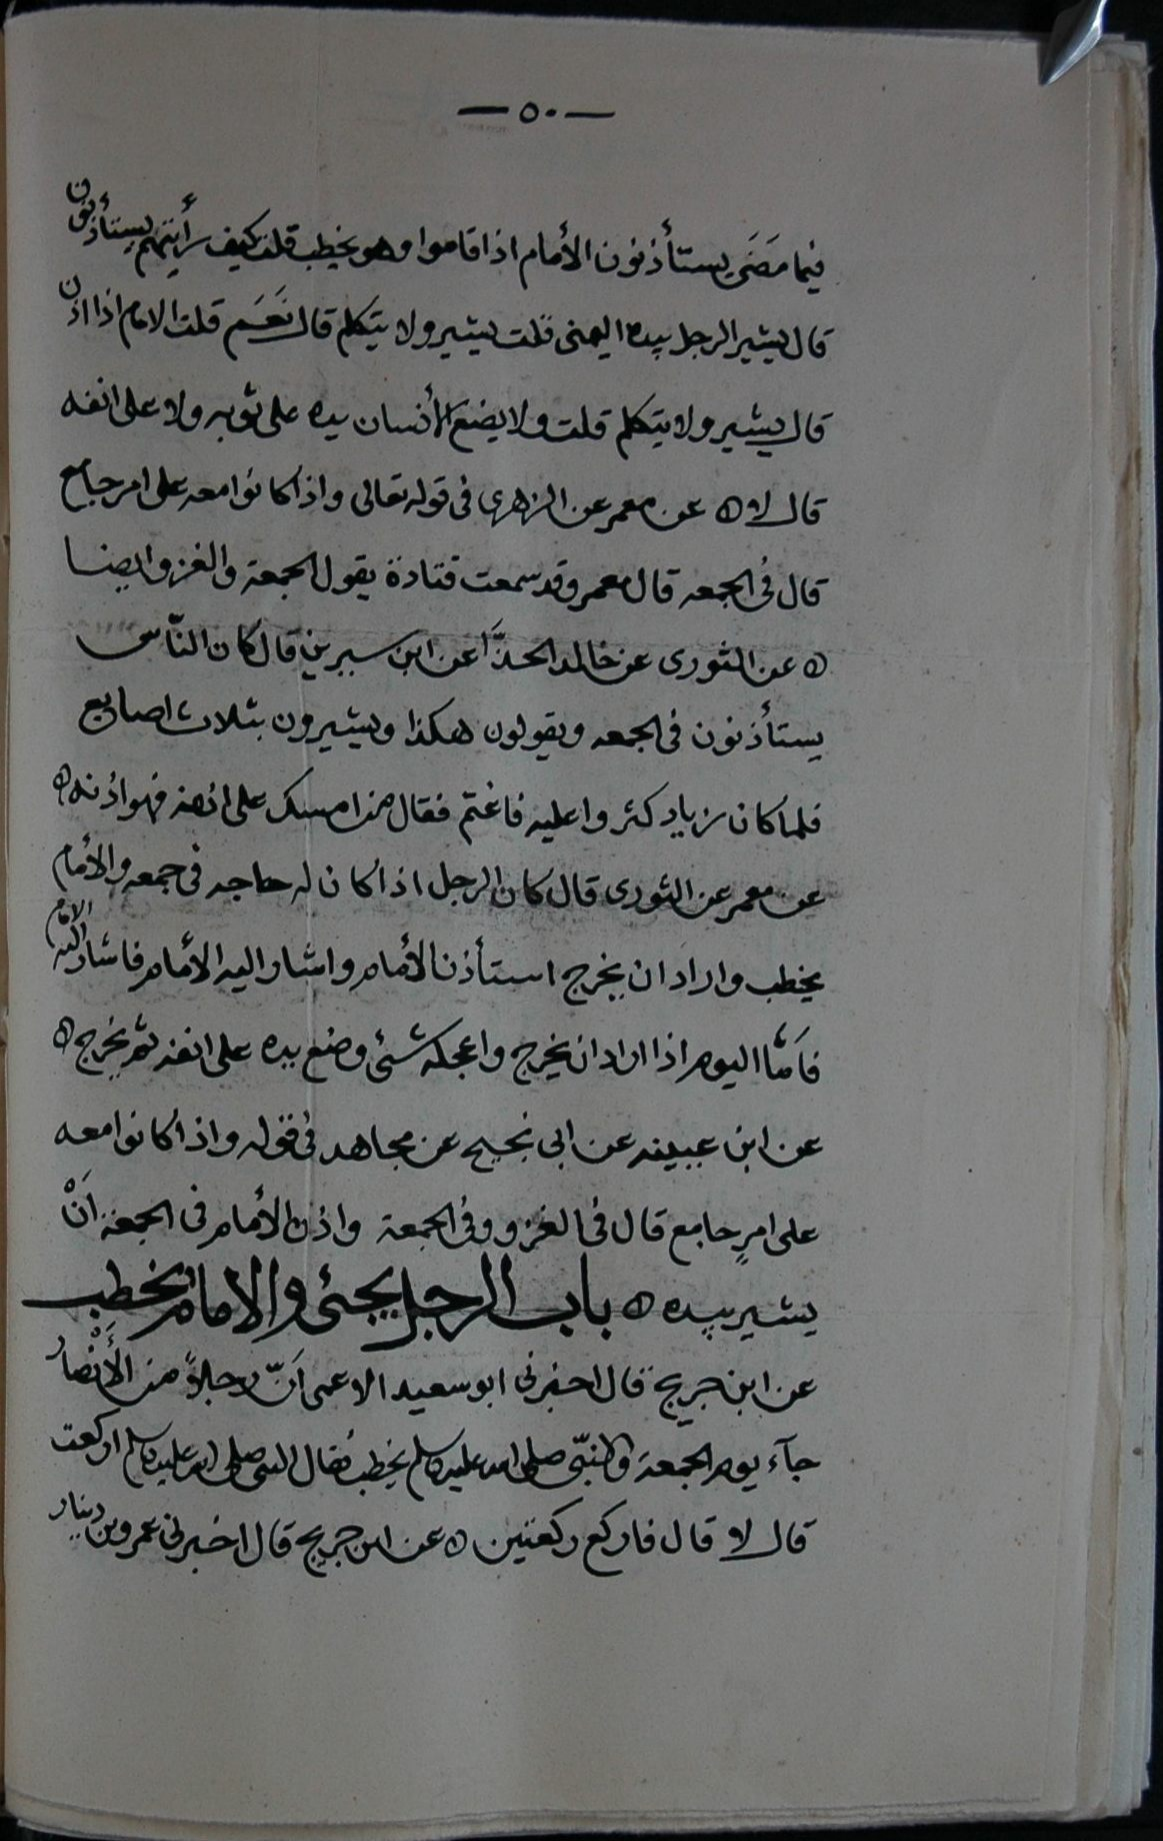 — ٥٠ —
فيما مَضَى يستأذنون الأمام اذا قاموا وهو يخطب قلت كيف رأيتهم يستأذنون
قال يشير الرجل بيده اليمنى قلت يشير ولا يتكلم قال نَعَم قلت الامام اذا اذن
قال يشير ولا يتكلم قلت ولا يضع الأنسان يده على ثوبه ولا على انفه
قال لا ه عن معمر عن الزهرى فى قوله تعالى واذا كانوا معه على امر جامع
قال فى الجمعه قال معمر وقد سمعت قتادة يقول الجمعة والغزو ايضا
ه عن الثورى عن خالد الحذَّا عن ابن سيرين قال كان النّاس
يستأذنون فى الجمعه ويقولون هكذا ويشيرون بثلاث اصابع
فلما كان زياد كثروا عليه فاغتم فقال من امسك على انفه فهو اذنه ه
عن معمر عن الثورى قال كان الرجل اذا كان له حاجه فى جمعه والأمام
يخطب واراد ان يخرج استأذن الأمام واشار اليه الأمام فاشار اليه الامام
فامّا اليوم اذا اراد ان يخرج واعجله شئ وضع يده على انفه ثم يخرج ه
عن ابن عيينه عن ابى نجيح عن مجاهد فى قوله واذا كانوا معه
على امرٍ جامع قال فى الغزو وفى الجمعة واذن الأمام فى الجمعة اَنْ
يشير بيده ه باب الرجل يجئ والامام يخطب
عن ابن جريج قال اخبرنى ابو سعيد الاعمى اَنّ رجلاً من الأَنْصار
جآء يوم الجمعة والنبّى صلى الله عليه وسلم يخطب فقال النبى صلى الله عليه وسلم اركعت
قال لا قال فاركع ركعتين ه عن ابن جريج قال اخبرنى عمرو بن دينار